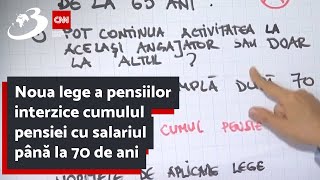 DE LA 65 ANI.
3 CNN
POT CONTINUA ACTIVITATEA LA
ACELAȘI ANGAJATOR SAU DOAR
LA "ALTUL ?
Noua lege a pensiilor
interzice cumulul
pensiei cu salariul
până la 70 de ani
MPLĂ DUPĂ 70
CUMUL PENSIE
NORMELE DE APLICARE LEGE